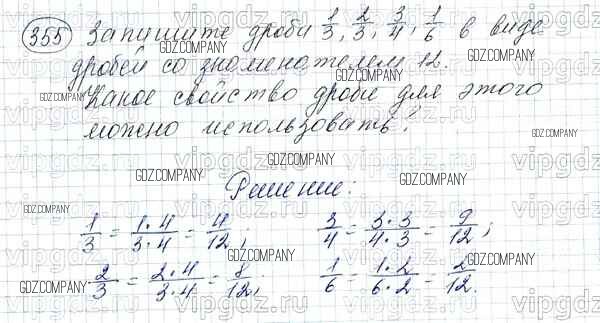 355 Запишите дроби 1/3, 2/3, 3/4, 1/6 в виде
дробей со знаменателем 12.
Какое свойство дроби для этого
можно использовать?
Решение:
1/3 = 1·4/3·4 = 4/12; 3/4 = 3·3/4·3 = 9/12;
2/3 = 2·4/3·4 = 8/12; 1/6 = 1·2/6·2 = 2/12.
GDZ.COMPANY
vipgdz.ru